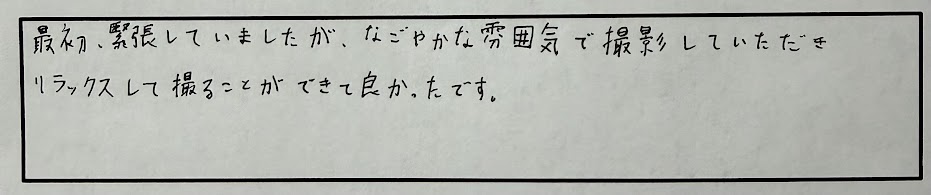 最初、緊張していましたが、なごやかな雰囲気で撮影していただき
リラックスして撮ることができて良かったです。